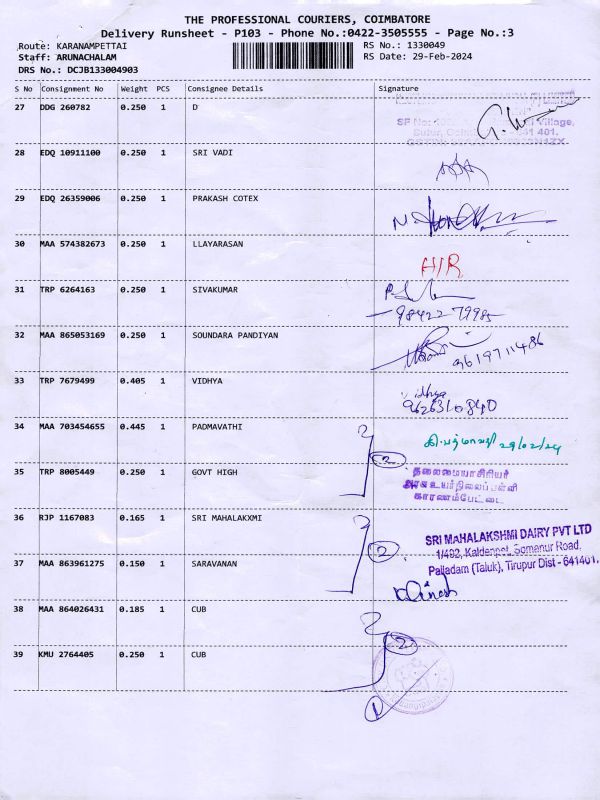 THE PROFESSIONAL COURIERS, COIMBATORE
Delivery Runsheet - P103 - Phone No.:0422-3505555 - Page No.:3
Route: KARANAMPETTAI RS No.: 1330049
Staff: ARUNACHALAM RS Date: 29-Feb-2024
DRS No.: DCJB133004903
S No Consignment No Weight PCS Consignee Details Signature
27 DDG 260782 0.250 1 D
SF No: Village,
641 401.
28 EDQ 10911100 0.250 1 SRI VADI
29 EDQ 26359006 0.250 1 PRAKASH COTEX
30 MAA 574382673 0.250 1 LLAYARASAN
H/R
31 TRP 6264163 0.250 1 SIVAKUMAR
98422 79985
32 MAA 865053169 0.250 1 SOUNDARA PANDIYAN
9619711486
33 TRP 7679499 0.405 1 VIDHYA
Vidhya
9626310840
34 MAA 703454655 0.445 1 PADMAVATHI
கி.பத்மாவதி 29/02/24
2
35 TRP 8005449 0.250 1 GOVT HIGH
தலைமையாசிரியர்
அரசு உயர்நிலைப்பள்ளி
காரணம்பேட்டை
36 RJP 1167083 0.165 1 SRI MAHALAKXMI
SRI MAHALAKSHMI DAIRY PVT LTD
2
1/492, Kaldenpet, Somanur Road,
37 MAA 863961275 0.150 1 SARAVANAN
Palladam (Taluk), Tirupur Dist - 641401.
Dinesh
38 MAA 864026431 0.185 1 CUB
2
39 KMU 2764405 0.250 1 CUB
1